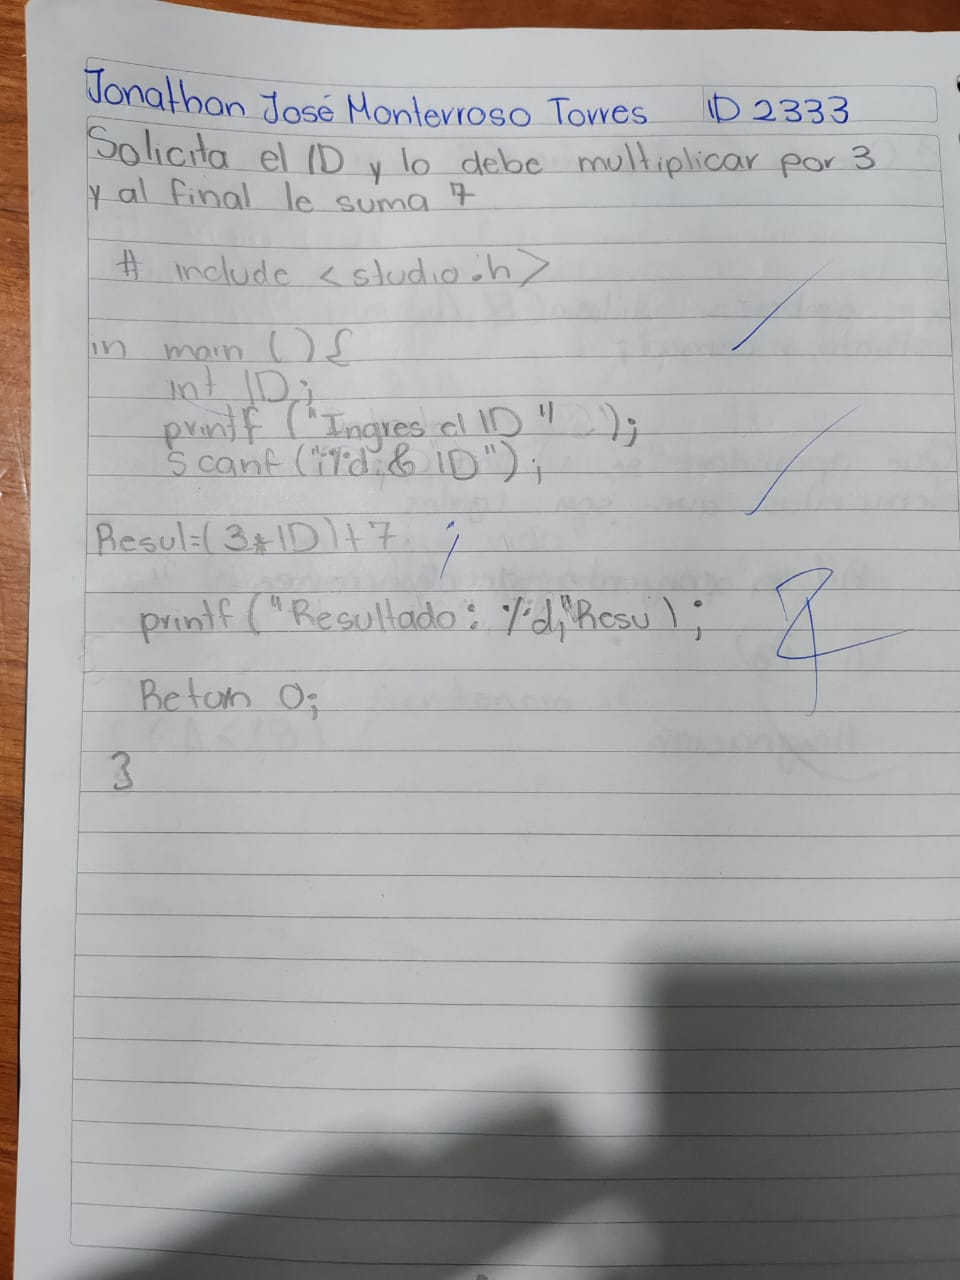 Jonathan José Monterroso Torres ID 2333
Solicita el ID y lo debe multiplicar por 3
y al final le suma 7
# include <studio.h>
in main () {
int ID;
printf ("Ingres el ID " );
Scanf ("%d, & ID");
Resul=(3*ID)+7 ;
printf ("Resultado: %d,"Resu);
Return 0;
}